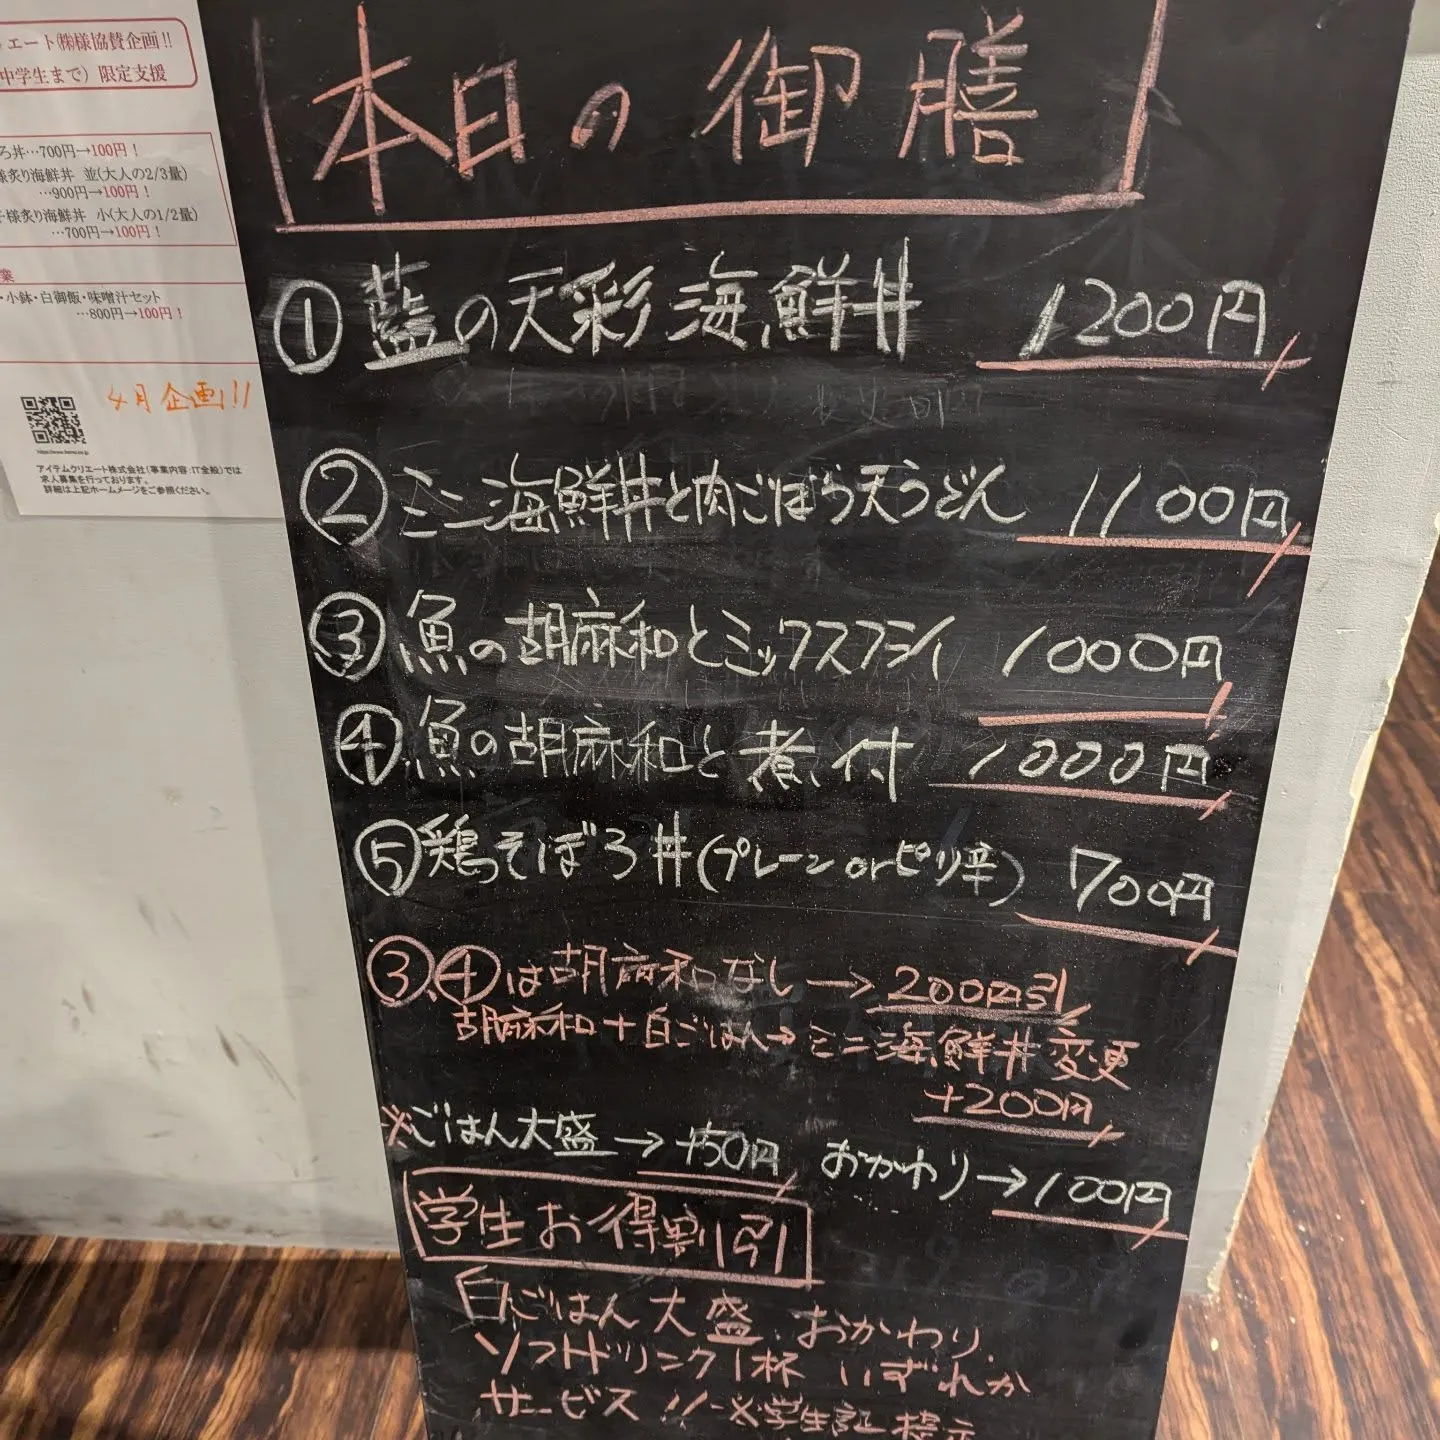 エート㈱様協賛企画!!
中学生まで）限定支援
ろ丼…700円→100円！
様炙り海鮮丼 並(大人の2/3量)
…900円→100円！
子様炙り海鮮丼 小(大人の1/2量)
…700円→100円！
業
・小鉢・白御飯・味噌汁セット
…800円→100円！
4月企画!!
アイテムクリエート株式会社（事業内容:IT全般）では
求人募集を行っております。
詳細は上記ホームページをご参照ください。
本日の御膳
①藍の天彩海鮮丼 1200円
②ミニ海鮮丼と肉ごぼう天うどん 1100円
③魚の胡麻和とミックスフライ 1000円
④魚の胡麻和と煮付 1000円
⑤鶏そぼろ丼(プレーンorピリ辛) 700円
③④は胡麻和なし→200円引
胡麻和+白ごはん→ミニ海鮮丼変更
+200円
※ごはん大盛→+50円 おかわり→100円
学生お得割引
白ごはん大盛、おかわり、
ソフトドリンク1杯 いずれか
サービス!!※学生証提示